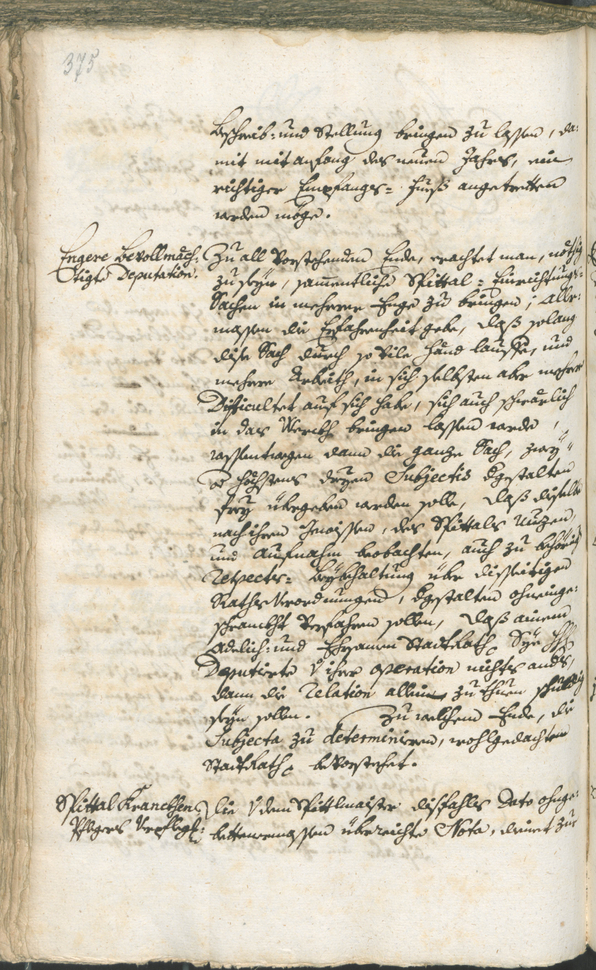 375
Beschreib: und Stellung bringen zu lassen, da:
mit mit anfang des neuen Jahrs, ein
richtiger Empfangs= angetretten
werden möge.
Engere Bevollmäch:
tigte Deputation.
Zu all Vorstehendem Ende, erachtet man, nöthig
zu seyn, sammentliche Spittal = Einrichtungs=
Sachen in mehrere Enge zu bringen; aller:
massen die Erfahrenheit gebe, daß solang
dise Sach durch so vile Händ lauffe, und
mehrere Arbeith, in sich selbsten aber mehrere
Difficultet auf sich habe, sich auch schwärlich
in das Werckh bringen lassen werde,
wessentwegen dann die ganze Sach, zwey
höchstens dreyen Subjectis dgestalten
frey übergeben werden solle, daß diselbe
nach ihrem gewissen, des Spittals Nuzen,
und Aufnahm beobachten, auch zu behörig
Respects= Beybehaltung über disseitigen
Raths Verordnungen, dgestalten ohneinge:
schränckht Verfahren sollen, daß einem
Adelich: und Ehrsamen StadtRath Sye
Deputirte ihrer operation nichts anders,
dann die Relation allein zu thuen schuldig
seyn sollen. Zu welchem Ende, die
Subjecta zu determiniren, wohlgedachtem
StadtRath bevorstehet.
Spittal Krancken
Pflegers Verpfleg:
Die dem Spittlmaister dissfahls Dato ohnge:
bettenermassen überreichte Nota, dienet zur